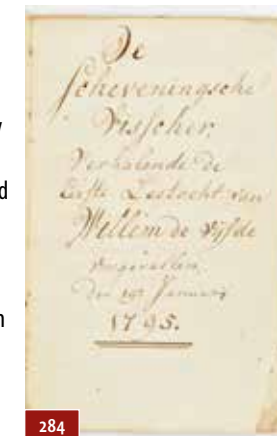 De
Scheveningsche
Visscher,
Verhalende de
Eerste Zeetocht van
Willem de Vijfde
Den 19e January
1795.
284